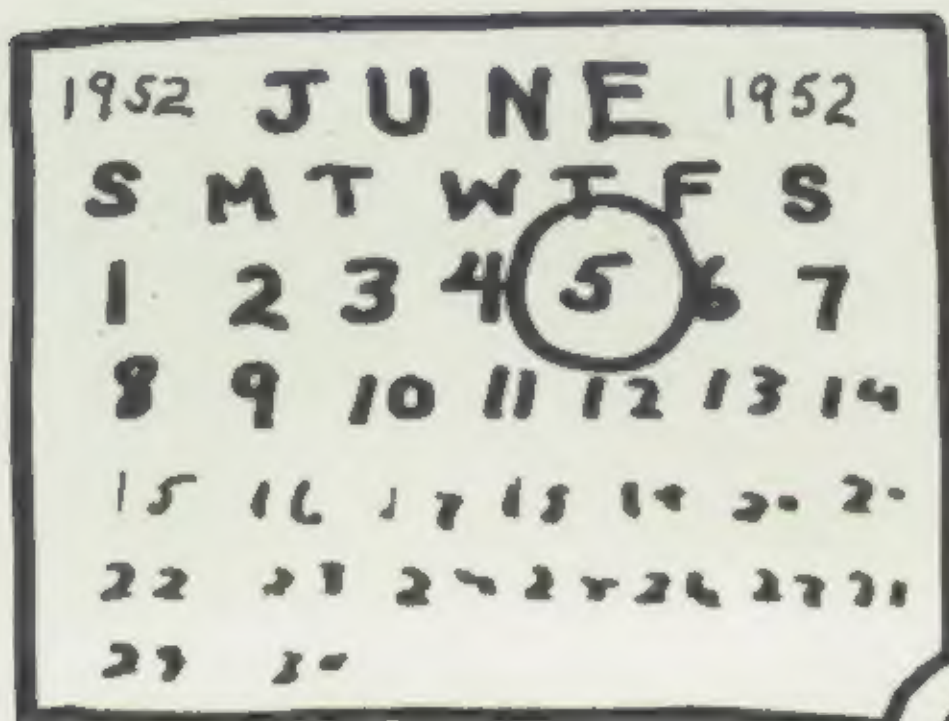 1952 JUNE 1952
S M T W T F S
1 2 3 4 5 6 7
8 9 10 11 12 13 14
15 16 17 18 19 20
22 23 26 27
30